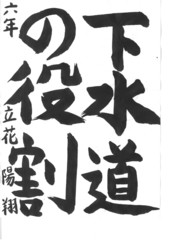 下水道
の役割
六年 立花陽翔